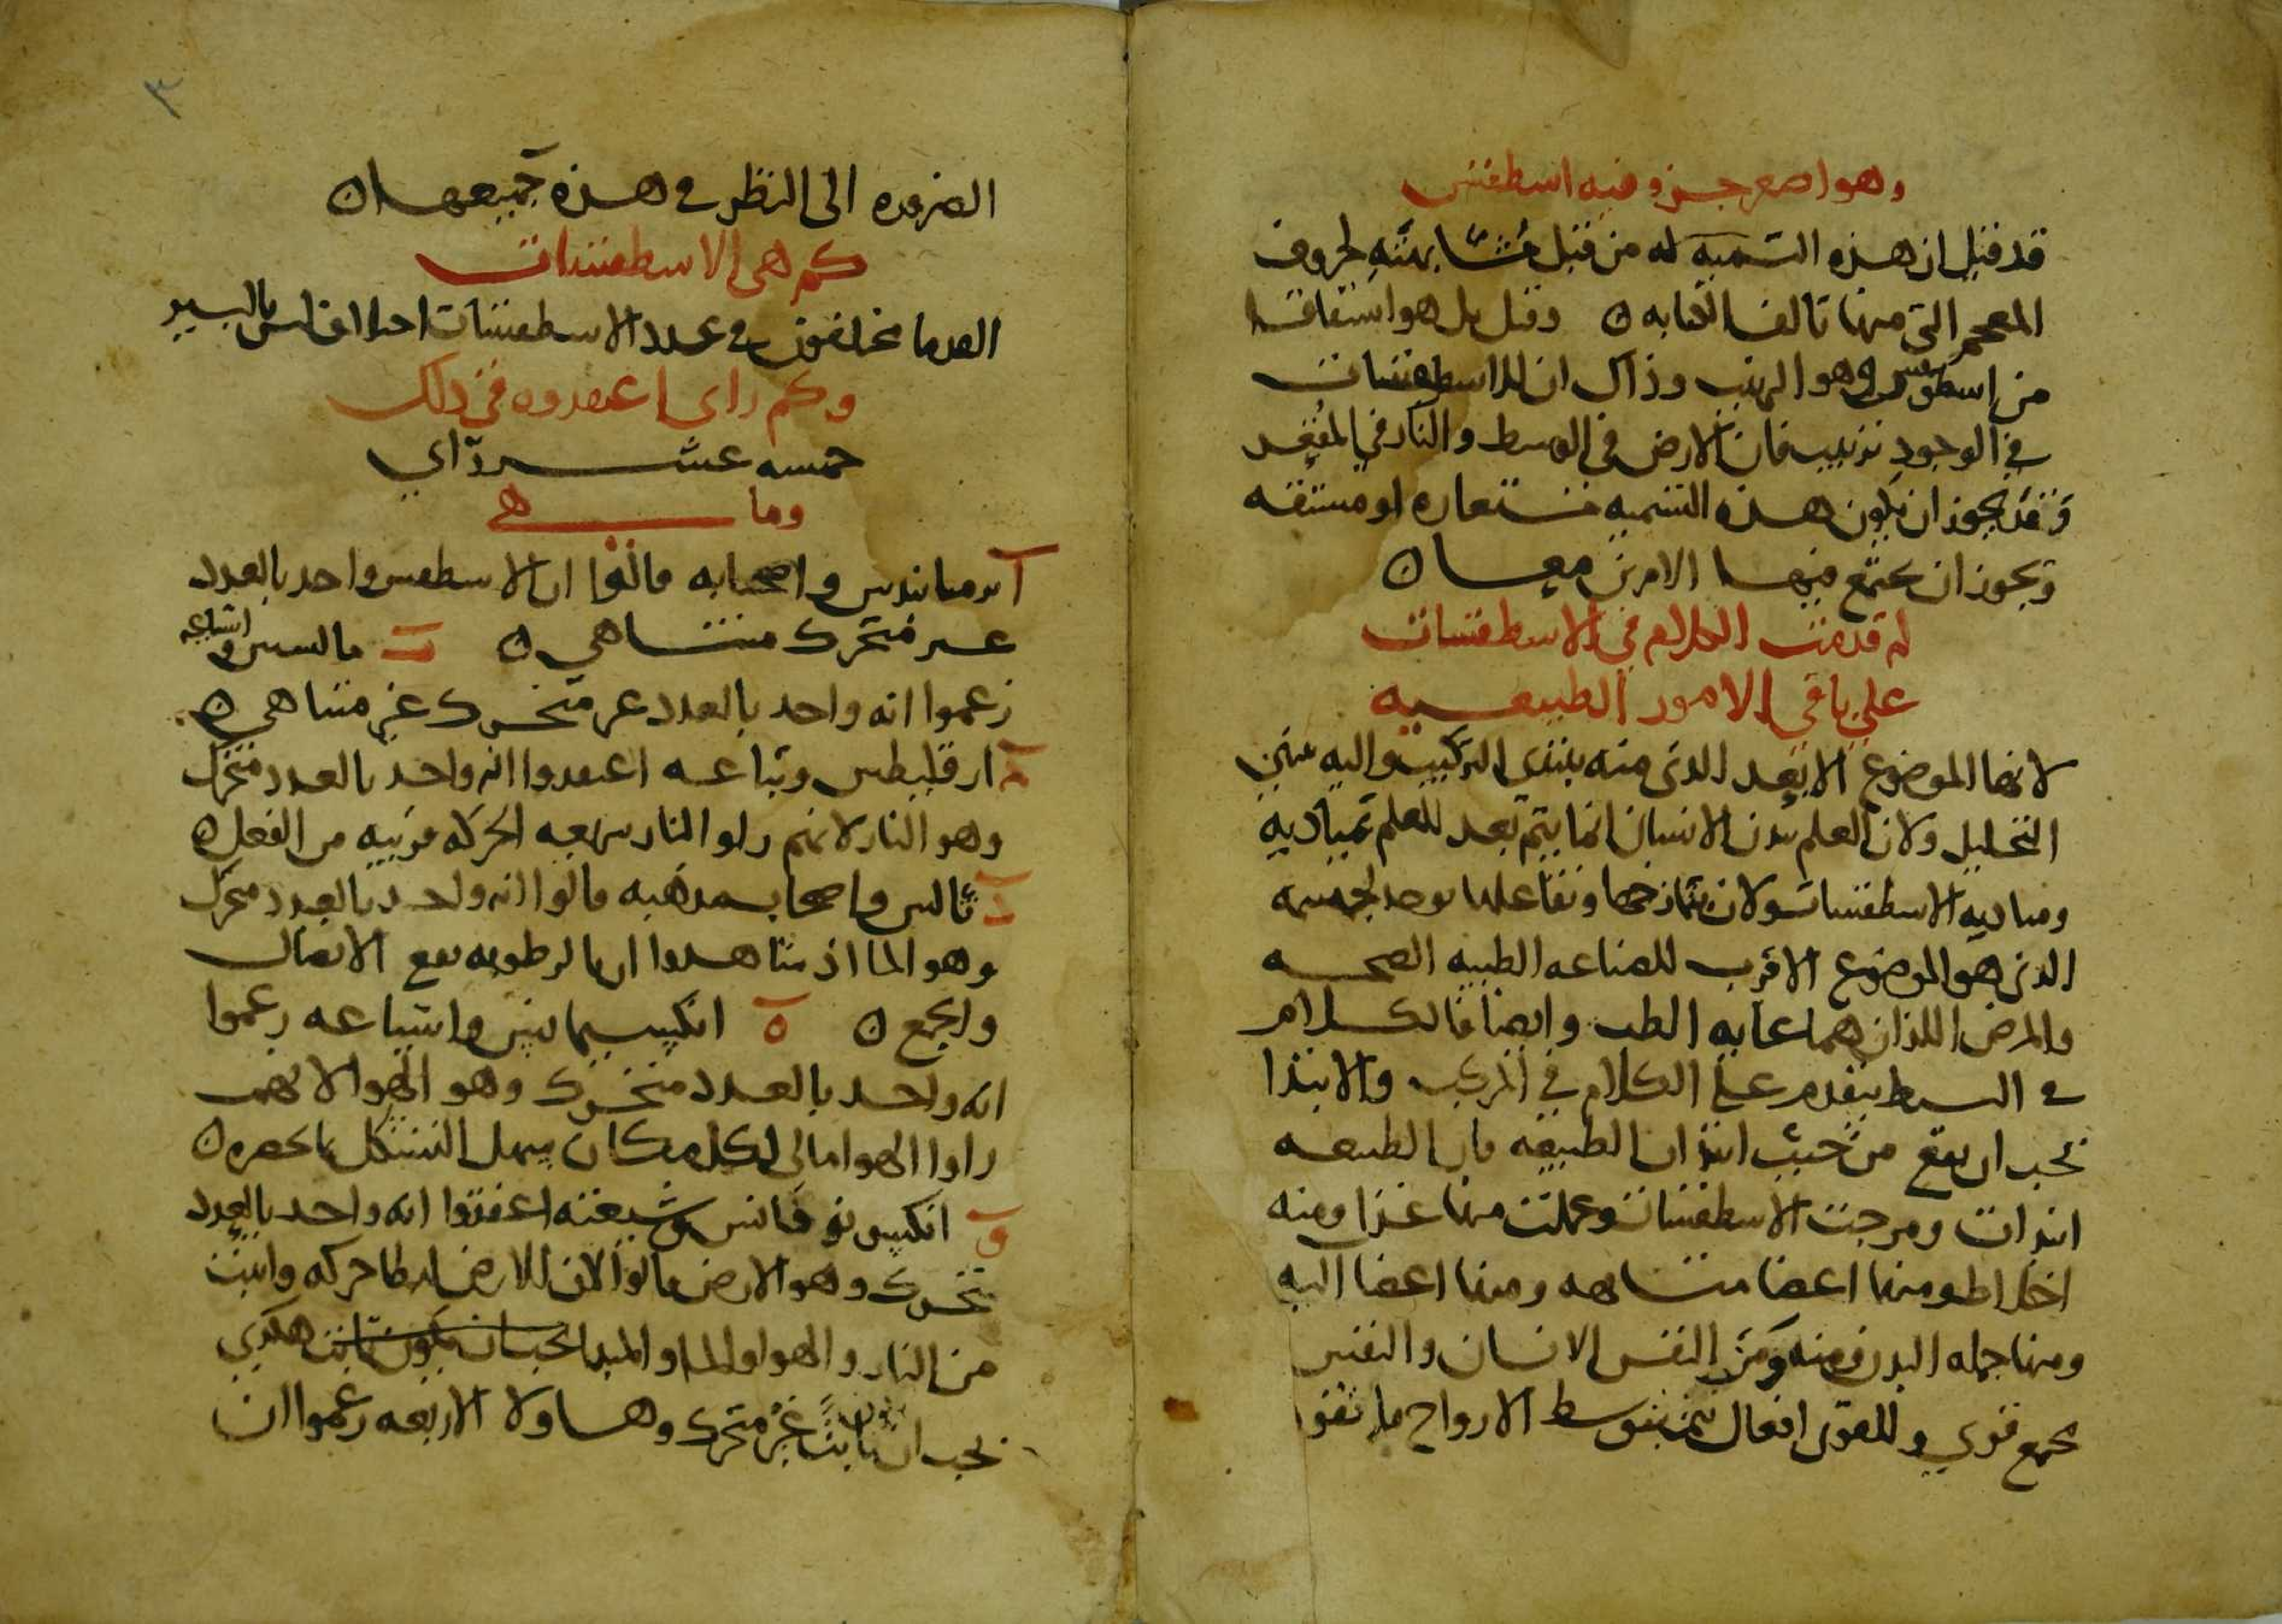 وهو اصغر جزو فيه اسطقس
قد قيل ان هذه التسميه له من قبل مشابهته لحروف
المعجم التي منها تالف الكتابه ه وقيل بل هو اشتقاقها
من وهو الرتب وذاك ان للاسطقسات
في الوجود ترتيب فان الارض في الوسط والنار في المقعد
وقد يجوز ان يكون هذه التسميه مستعاره او مشتقه
ويجوز ان يجتمع فيها الامرين معا ه
لم قدمت الكلام في الاسطقسات
على باقي الامور الطبيعيه
لانها الموضوع الابعد الذي منه يبتدي التركيب واليه ينتهي
التحليل ولان العلم ببدن الانسان انما يتم بعد العلم بمباديه
ومباديه الاسطقسات ولان تمازجها وتفاعلها يوجد لجسمه
الذي هو الموضوع الاقرب للصناعه الطبيه الصحه
والمرض اللذان هما غايه الطب وايضا فالكلام
في البسيط يتقدم على الكلام في المركب والابتدا
يجب ان يقع من حيث ابتدات الطبيعه فان الطبيعه
ابتدات ومزجت الاسطقسات وعملت منها غذا ومنه
اخلاط ومنها اعضا متشابهه ومنها اعضا اليه
ومنها جمله البدن ومنه ومن النفس الانسان والنفس
مجمع قوي وللقوى افعال تتم بتوسط الارواح
الضروره الى النظر في هذه جميعها ه
كم هي الاسطقسات
القدما مختلفون في عدد الاسطقسات اختلاف ليس باليسير
وكم راى اعتقدوه في ذلك
خمسه عشر رآي
وما هي
آ برمنانيدس واصحابه قالوا ان الاسطقس واحد بالعدد
غير متحرك متناهي ه ب مالسس واشياعه
زعموا انه واحد بالعدد غير متحرك غير متناهي ه
ج ارقليطس وتباعه اعتقدوا انه واحد بالعدد متحرك
وهو النار لانهم راو النار سريعه الحركه قريبه من الفعل ه
د ثالس واصحاب مذهبه قالوا انه واحد بالعدد متحرك
وهو الما اذ شاهدوا ان بالرطوبه يقع الاتصال
والجمع ه ه انكسيمانس واشياعه زعموا
انه واحد بالعدد متحرك وهو الهوا لانهم
راوا الهوا مالى لكل مكان سهل التشكل بما يحصره ه
و وشيعته اعتقدوا انه واحد بالعدد
متحرك وهو الارض قالوا لان الارض ابطا حركه واثبت
من النار والهوا والما والمبدا يجب ان يكون ثابت هكذي
يجب ان يكون ثابتً غير متحرك وهاولا الاربعه زعموا ان
٣